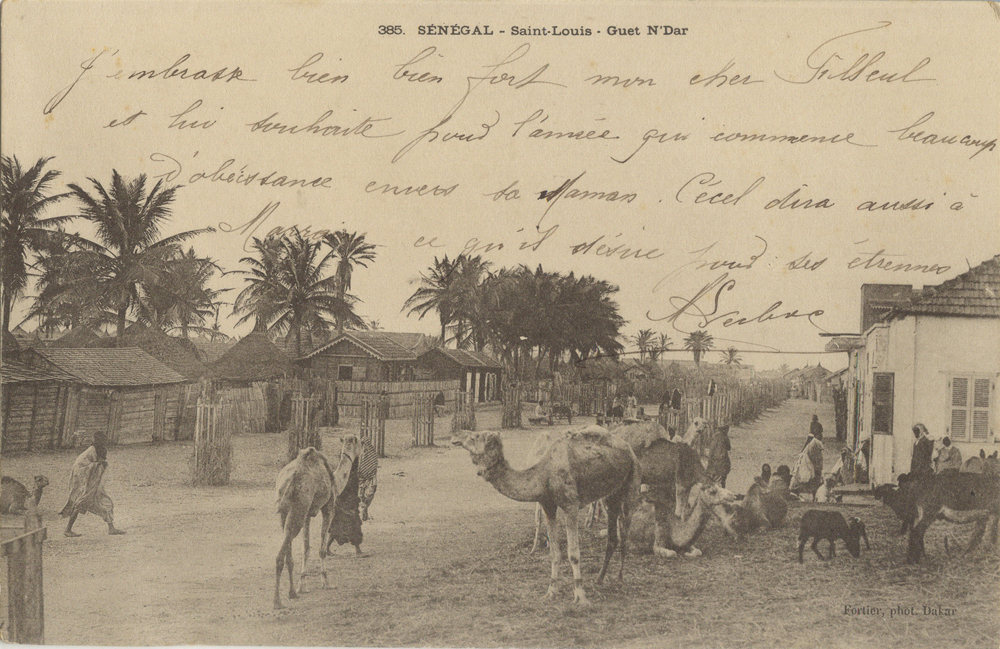 385. SÉNÉGAL - Saint-Louis - Guet N'Dar
J'embrasse bien bien fort mon cher Filleul
et lui souhaite pour l'année qui commence beaucoup
d'obéissance envers sa Maman. Cécel dira aussi à
ce qu'il désire pour ses étrennes
Fortier, phot. Dakar